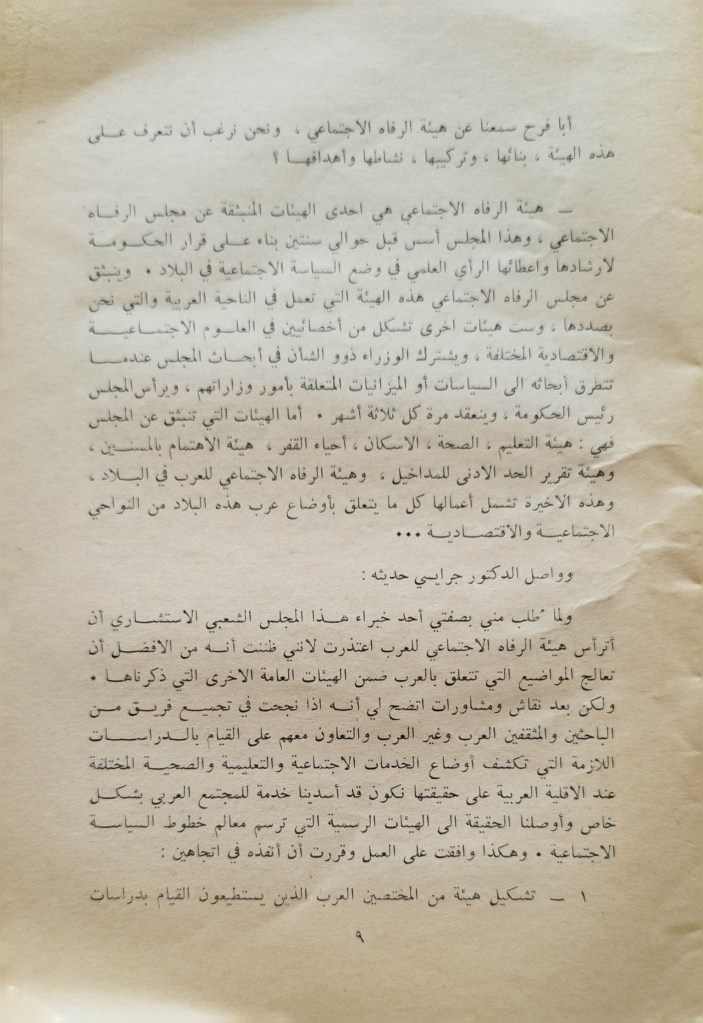 أبا فرح سمعنا عن هيئة الرفاه الاجتماعي ، ونحن نرغب أن نتعرف علـى
هذه الهيئة ، بنائها ، وتركيبها ، نشاطها وأهدافهـا ؟
ــ هيئة الرفاه الاجتماعي هي احدى الهيئات المنبثقة عن مجلس الرفـاه
الاجتماعي ، وهذا المجلس أسس قبل حوالي سنتين بناء علـى قرار الحكـومة
لارشادها واعطائها الرأي العلمي في وضع السياسة الاجتماعية في البلاد • وينبثق
عن مجلس الرفاه الاجتماعي هذه الهيئة التي تعمل في الناحية العربية والتي نحن
بصددها ، وست هيئات اخرى تشكل من أخصائيين في العلـوم الاجتمـاعيـة
والاقتصادية المختلفة ، ويشترك الوزراء ذوو الشأن في أبحاث المجلس عندمـا
تتطرق أبحاثه الى السياسات أو الميزانيات المتعلقة بأمور وزاراتهم ، ويرأس المجلس
رئيس الحكومة ، وينعقد مرة كل ثلاثة أشهر • أما الهيئات التي تنبثق عن المجلس
فهي : هيئة التعليم ، الصحة ، الاسكان ، أحياء الفقر ، هيئة الاهتمام بالمسنـين ،
وهيئة تقرير الحد الادنى للمداخيل ، وهيئة الرفاه الاجتماعي للعرب في البـلاد ،
وهذه الاخيرة تشمل أعمالها كل ما يتعلق بأوضاع عرب هذه البلاد من النواحي
الاجتماعيـة والاقتصـاديـة •••
وواصل الدكتور جرايسي حديثه :
ولما طُلب مني بصفتي أحد خبراء هـذا المجلس الشعبي الاستشـاري أن
أترأس هيئة الرفاه الاجتماعي للعرب اعتذرت لانني ظننت أنـه من الافضل أن
تعالج المواضيع التي تتعلق بالعرب ضمن الهيئات العامة الاخرى التي ذكرناها •
ولكن بعد نقاش ومشاورات اتضح لي أنـه اذا نجحت في تجميع فريـق مـن
الباحثين والمثقفين العرب وغير العرب والتعاون معهم على القيام بالـدراسـات
اللازمة التي تكشف أوضاع الخدمات الاجتماعية والتعليمية والصحيـة المختلفة
عند الاقلية العربية على حقيقتها نكون قد أسدينا خدمة للمجتمع العربي بشكـل
خاص وأوصلنا الحقيقة الى الهيئات الرسمية التي ترسم معالم خطوط السياسـة
الاجتماعية • وهكذا وافقت على العمل وقررت أن أنفذه في اتجاهين :
١ ــ تشكيل هيئة من المختصين العرب الذين يستطيعون القيام بدراسات
٩